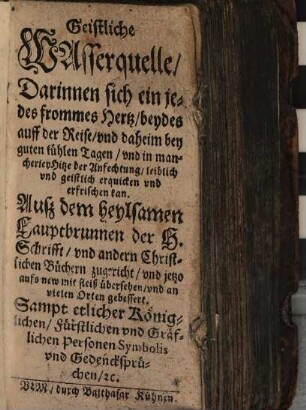 Geistliche
WAsserquelle/
Darinnen sich ein je-
des frommes Hertz/beydes
auff der Reise/vnd daheim bey
guten kühlen Tagen/vnd in man-
cherley Hitze der Anfechtung/leiblich
vnd geistlich erquicken vnd
erfrischen kan.
Auß dem heylsamen
Hauptbrunnen der H.
Schrifft/vnd andern Christ-
lichen Büchern zugericht/vnd jetzo
auffs new mit fleiß übersehen/vnd an
vielen Orten gebessert.
Sampt etlicher König-
lichen/Fürstlichen vnd Gräf-
lichen Personen Symbolis
vnd Gedencksprü-
chen/ꝛc.
VLM/durch Balthasar Kühnen.